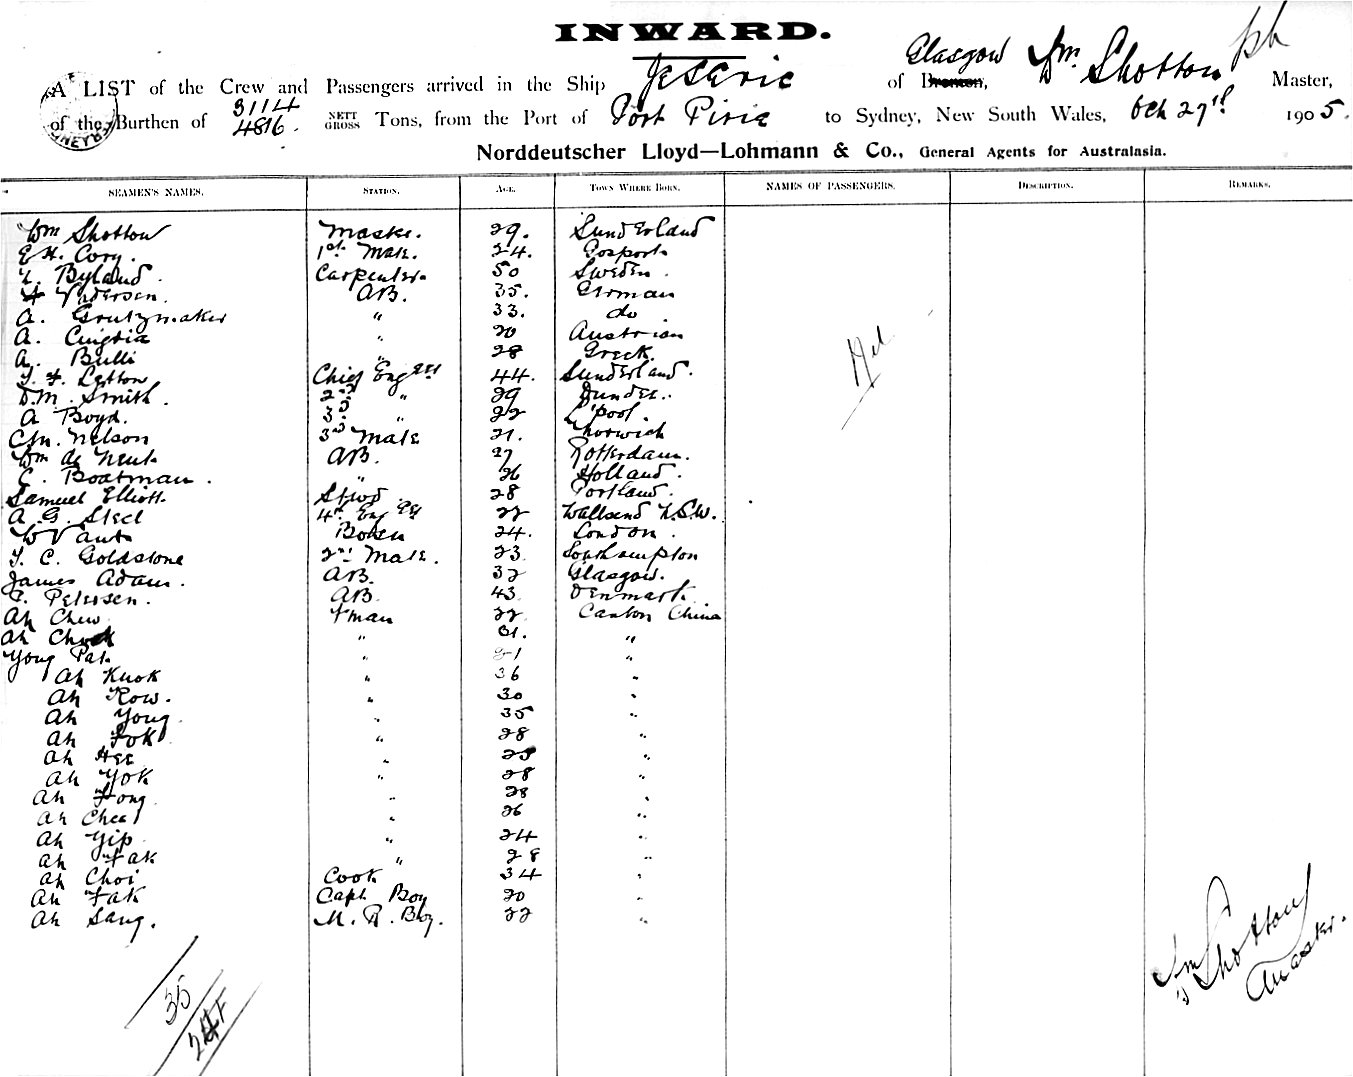 INWARD.
A LIST of the Crew and Passengers arrived in the Ship Jeseric of Glasgow Bremen, Wm. Shotton Master,
of the Burthen of 3114 4816. NETT GROSS Tons, from the Port of Port Pirie to Sydney, New South Wales, Oct 27th 1905.
Norddeutscher Lloyd—Lohmann & Co., General Agents for Australasia.
SEAMEN'S NAMES. STATION. AGE. TOWN WHERE BORN. NAMES OF PASSENGERS. DESCRIPTION. REMARKS.
Wm Shotton Master. 29. Sunderland
E H. Cory. 1st Mate. 24. Gosport
Byland Carpenter. 50 Sweden
Andersen. AB. 35. German
A. Grutzmaker " 33. do
A. Cuigria " 20 Austrian
A. Bulli " 28 Greek
Letton Chief Eng 44. Sunderland.
D. M. Smith. 2nd " 29 Dundee.
A Boyd. 3rd " 22 L'pool.
Nelson 3rd Mate 21. Norwich
Wm de Neut AB. 27 Rotterdam.
C. Boatman. " 26 Holland
Samuel Elliott Stwd 28 Portland.
A. G. Steel 4th Eng 22 Wallsend N.S.W.
W Vant Bosun 24. London.
T. C. Goldstone 2nd Mate. 23 Southampton
James Adam. AB. 32 Glasgow.
Petersen. AB. 43. Denmark
Ah Chew Fman 22 Canton China
Ah Chuck " 31. "
Yong Pat " "
Ah Kuok " 36 "
Ah Kow. " 30 "
Ah Yong " 35 "
Ah Fok " 28 "
Ah Hee " 28 "
Ah Yok " 28 "
Ah Fong " 28 "
Ah Chea " 26 "
Ah Yip " 24 "
Ah Fak " 28 "
Ah Choi Cook 34 "
Ah Fak Capt. Boy 20 "
Ah Sang. M. R. Boy. 22 "
Nil
35
Wm Shotton
Master.